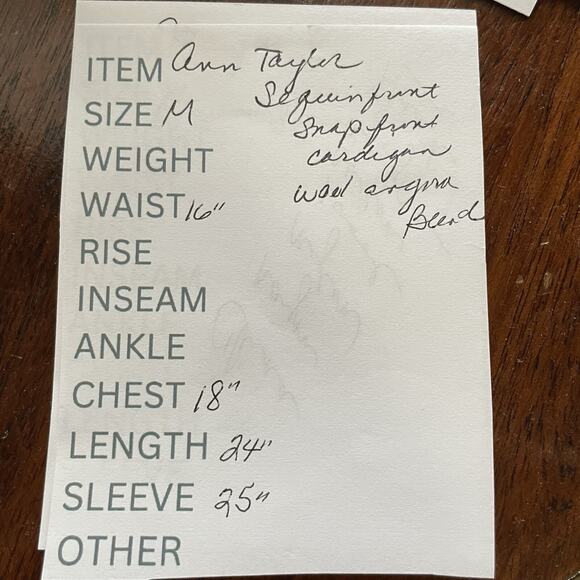 ITEM Ann Taylor
Sequin front
SIZE M
snap front
WEIGHT
cardigan
WAIST 16"
wool angora
Blend
RISE
INSEAM
ANKLE
CHEST 18"
LENGTH 24"
SLEEVE 25"
OTHER